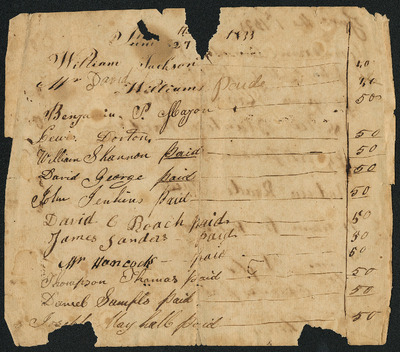 June 27 1833
William Jackson 50
Mr David Williams Paid 50
Benjamin P. Mayon 50
Lewis Dorton
William Shannon Paid 50
David George Paid 50
John Jenkins Paid 50
David C Roach paid 50
James Sanders Paid 50
Mr Hancock paid 50
Thompson Thomas paid 50
Daniel Sample paid 50
Joseph paid 50